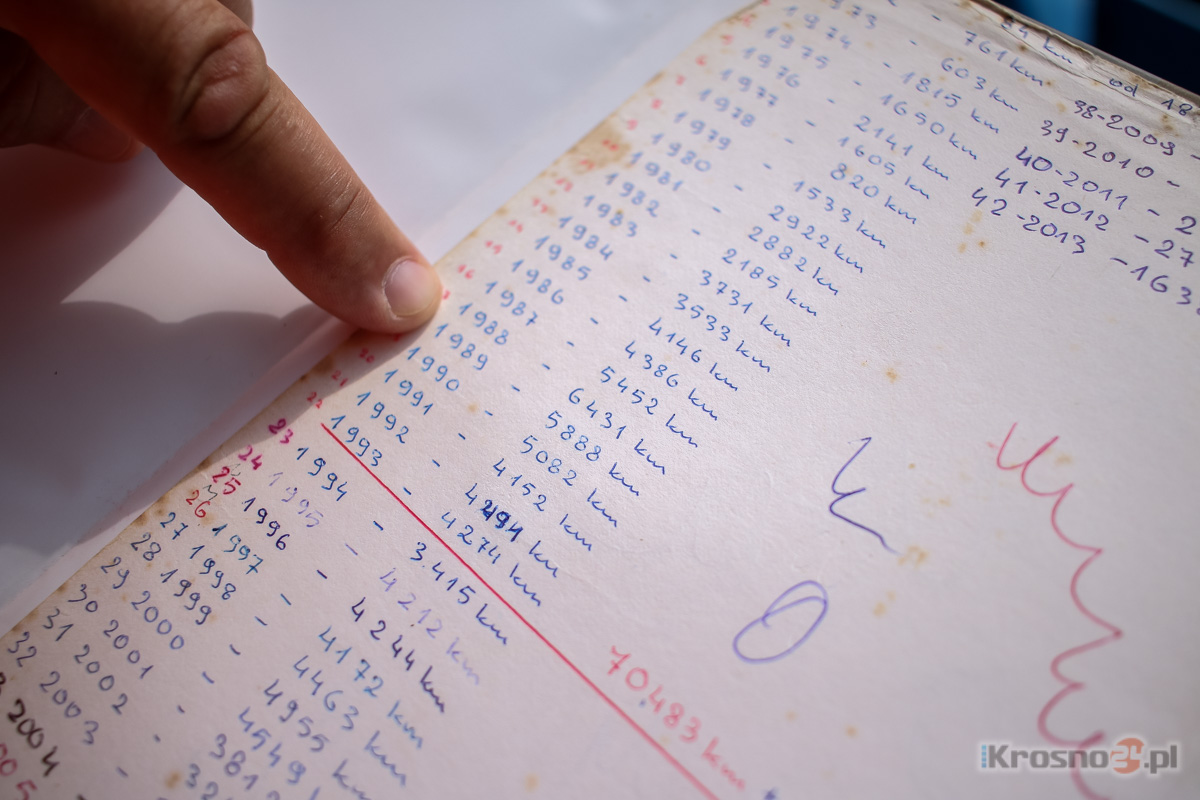 km od 18
761 km
1973 - 603 km
1974 - 1815 km
1975 - 1650 km
1976 - 2141 km
1977 - 1605 km
1978 - 820 km
1979 - 1533 km
1980 - 2922 km
1981 - 2882 km
1982 - 2185 km
1983 - 3731 km
1984 - 3533 km
1985 - 4146 km
16 1986 - 4386 km
1987 - 5452 km
1988 - 6431 km
1989 - 5888 km
20 1990 - 5082 km
21 1991 - 4152 km
22 1992 - 4291 km
1993 - 4274 km
70.483 km
23 1994 - 3.415 km
24 1995 - 4212 km
25 1996 - 4244 km
26 1997 - 4172 km
27 1998 - 4463 km
28 1999 - 4955 km
29 2000 - 4549
30 2001 - 381
31 2002 -
32 2003 -
2004
38-2009 -
39-2010 -
40-2011 - 2
41-2012 - 27
42-2013 - 163
Krosno24.pl